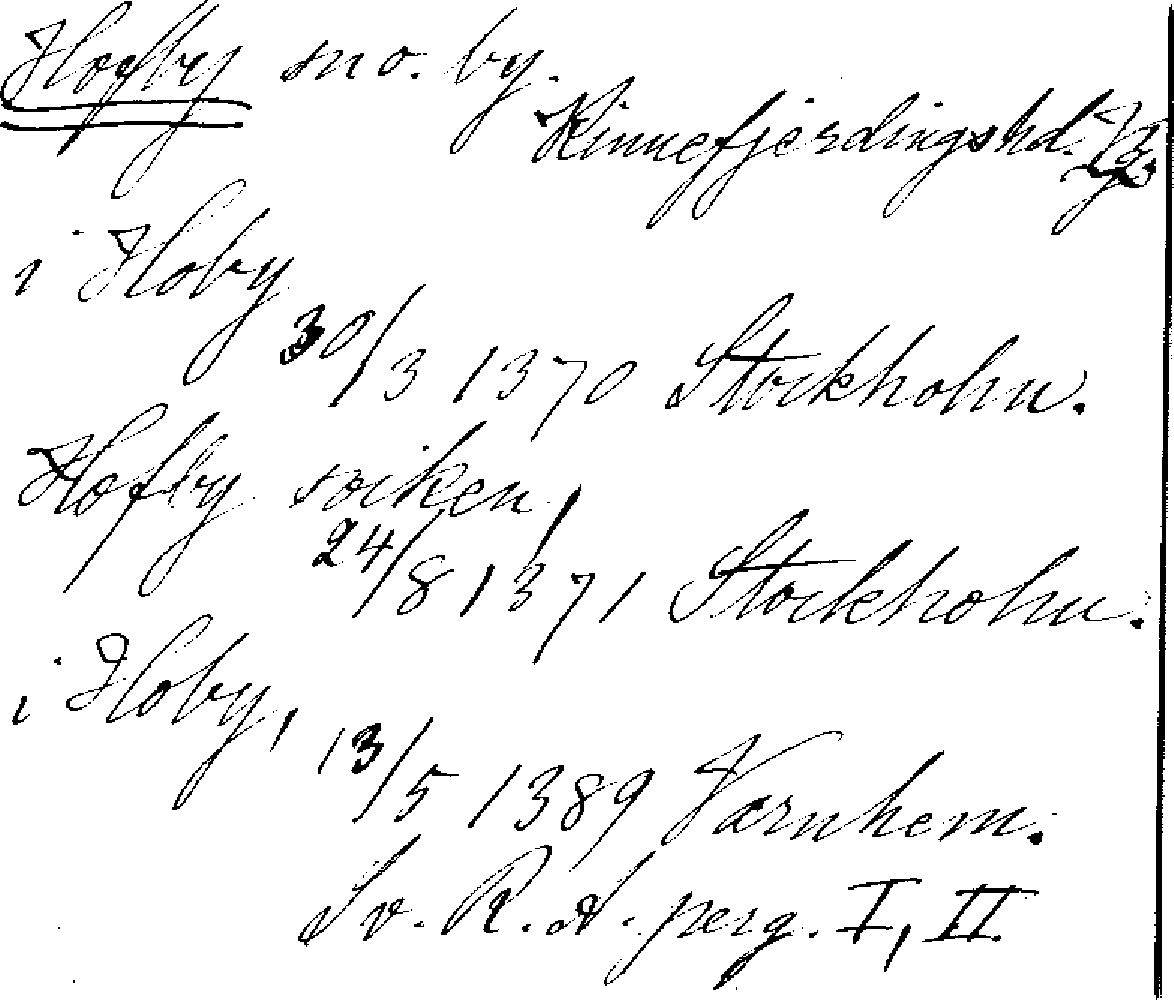 Hofby sn o. by.
Kinnefjerdingshd. Vg.
i Hoby
30/3 1370 Stockholm.
Hofby socken,
24/8 1371 Stockholm.
i Hoby,
13/5 1389 Varnhem.
Sv. R. A. perg. I, II.